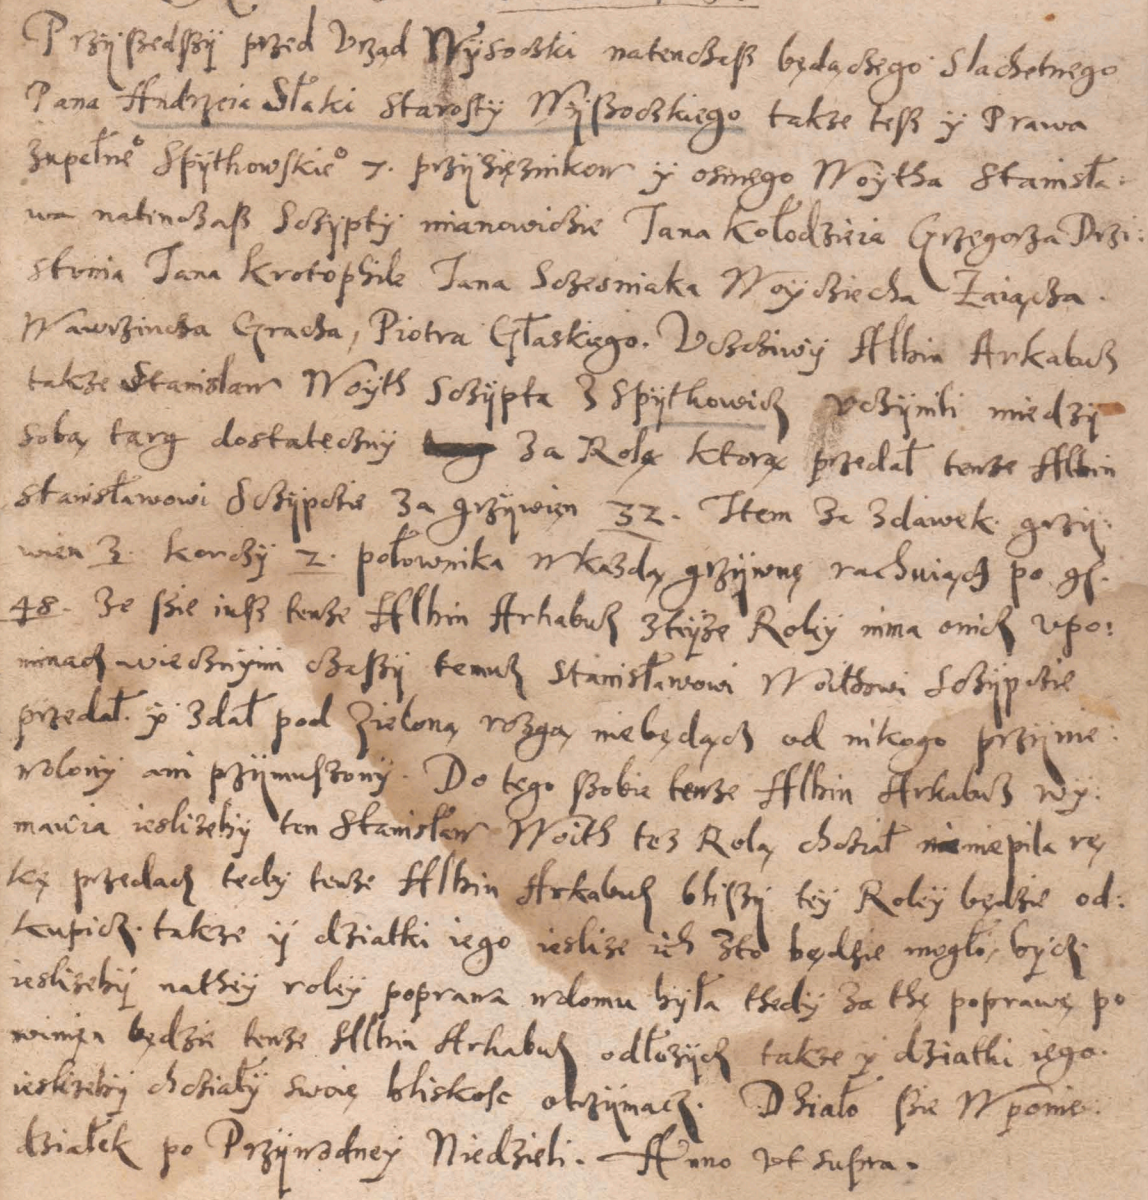 Przyszedszy przed Vrząd Wysoczki natenczasz będączego Slachetnego
Pana Andrzeia Słaki Starosty Wyszoczkiego takze tesz y Prawa
zupełneº Spythowskieº 7. przysięznikow y osmego Woytha Stanisła:
wa natenczasz Sczypty mianowiczie Jana Kołodzieia Grzegorza Przi:
stvnia Jana Krotophile Jana Sczesniaka Woyciecha Zaiącza.
Wawrzincza Gracza, Piotra Głaskiego. Vczciwy Albin Arkabuz
takze Stanislaw Woyth Sczypta z Spythowicz vczynili miedzy
sobą targ dostateczny za Rolą ktorą przedał tenze Albin
Stanisławowi Sczypczie za grzywien 32. Item za zdawek grzy:
wien 3. korczy 2. połownika w kazdą grzywnę rachuiącz po gr.
48. Ze szie iusz tenze Albin Arkabuz zteyze Roley nima onich vpo:
minacz wiecznymi czaszy temuz Stanisławowi Woithowi Sczypczie
przedał. y zdał pod zieloną rozgą niebędącz od nikogo przynie:
wolony ani przymuszony. Do tego szobie tenze Albin Arkabuz wy:
mawia ieslizeby ten Stanisław Woith tez Rolą chcział niniepila rę
kę przedacz tedy tenze Albin Arkabuz bliszy tey Roley będzie od:
kupicz. takze y dziatki iego ieslize ich zto będzie mogło, bycz.
ieslizeby nathey roley poprawa wdomu była thedy za thę poprawę po
winien będzie tenze Albin Arkabuz odłozycz takze y dziatki iego.
ieslizeby chciały swoię bliskosc otrzymacz. Działo szie W ponie:
działek po Przywodney Niedzieli. Anno vt supra.